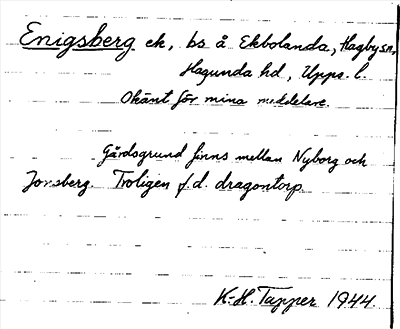 Enigsberg ek, bs å Ekbolanda, Hagby sn,
Hagunda hd, Upps. l.
Okänt för mina meddelare.
Gårdsgrund finns mellan Nyborg och
Jonsberg. Troligen f.d. dragontorp.
K-H. Tapper 1944.